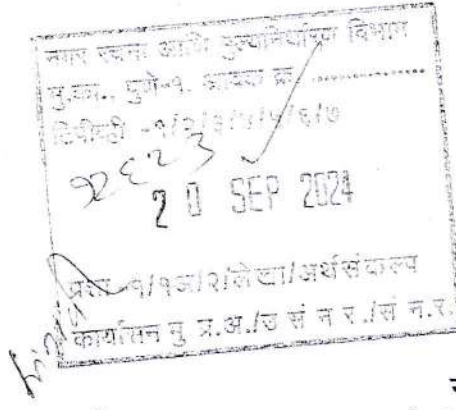 नगर रचना आणि मुल्यनिर्धारण विभाग
मु.का., पुणे-१. आवक क्र. ................
टिपीव्ही -१/२/३/४/५/६/७
२६२३
20 SEP 2024
प्रशा -१/१अ/२/लेखा/अर्थसंकल्प
कार्यासन मु प्र.अ./उ सं न र./सं न.र.